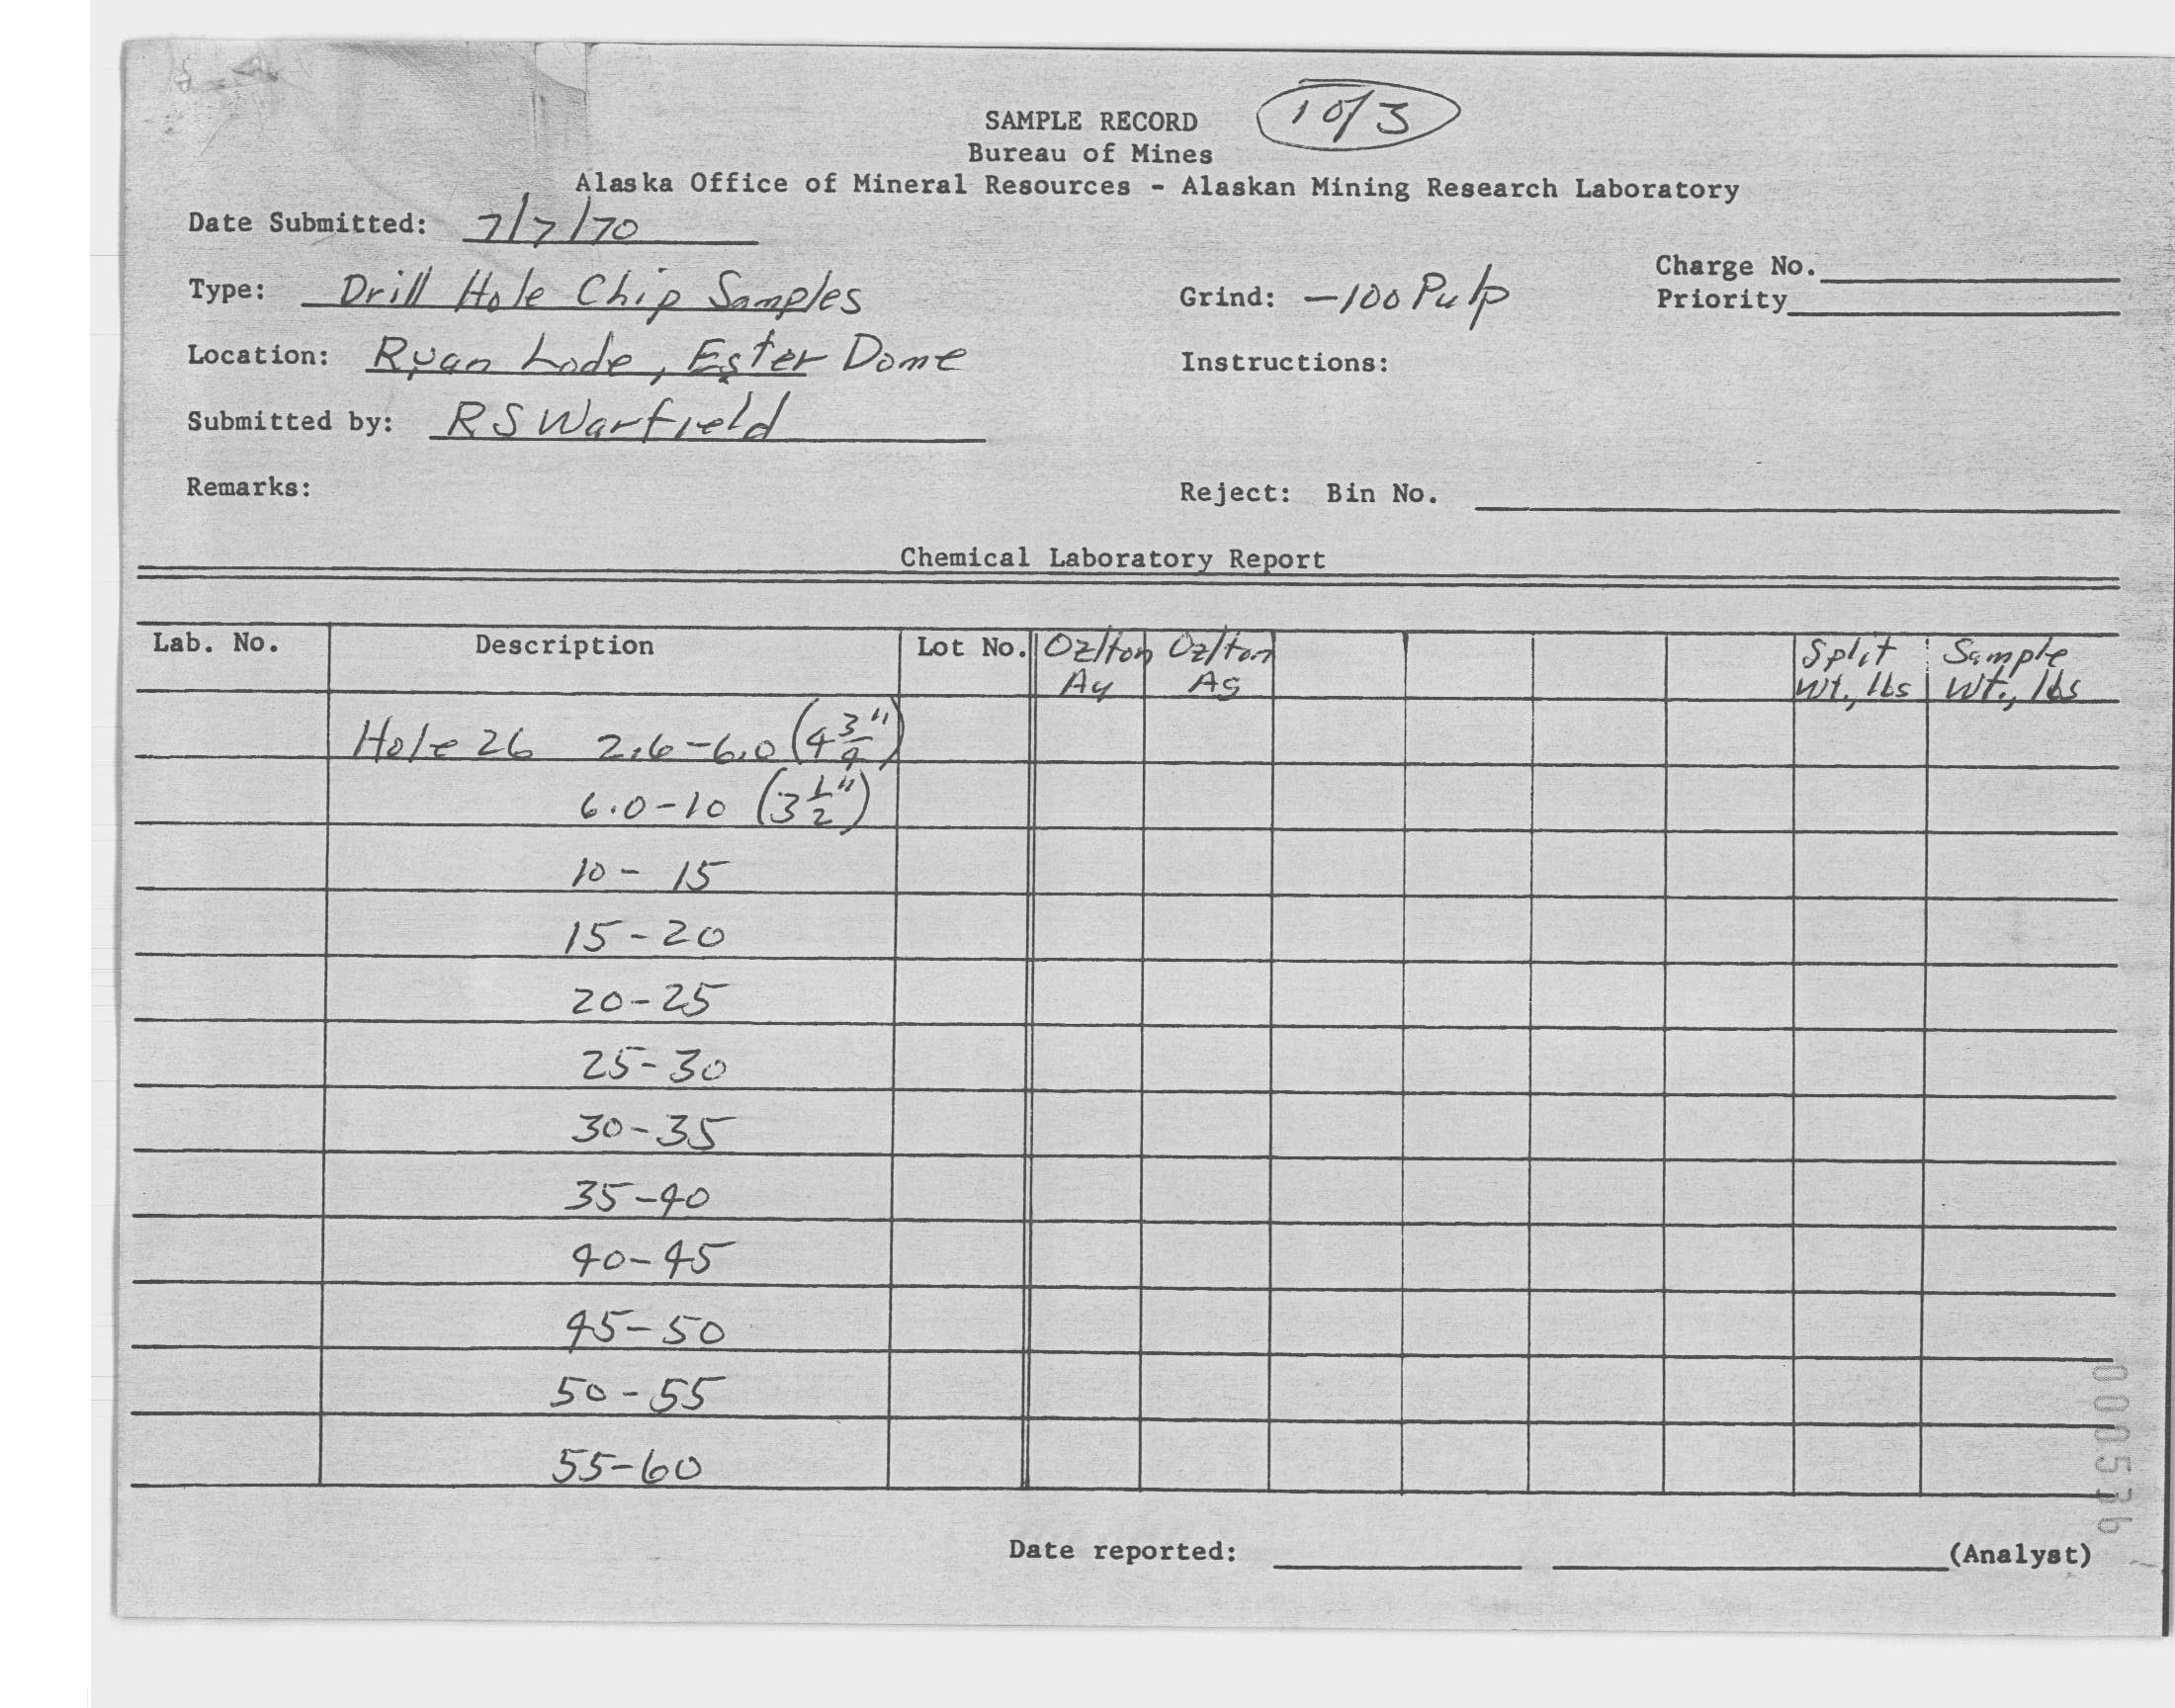 1 of 3
SAMPLE RECORD
Bureau of Mines
Alaska Office of Mineral Resources - Alaskan Mining Research Laboratory
Date Submitted: 7/7/70
Charge No.
Type: Drill Hole Chip Samples
Grind: -100 Pulp
Priority
Location: Ryan Lode, Ester Dome
Instructions:
Submitted by: RS Warfield
Remarks:
Reject: Bin No.
Chemical Laboratory Report
Lab. No. Description Lot No. Oz/ton Oz/ton Split Sample
Au Ag Wt., lbs Wt., lbs
Hole 26 2.6-6.0 (4 3/4")
6.0-10 (3 1/2")
10- 15
15-20
20-25
25-30
30-35
35-40
40-45
45-50
50-55
55-60
Date reported: (Analyst)
000536